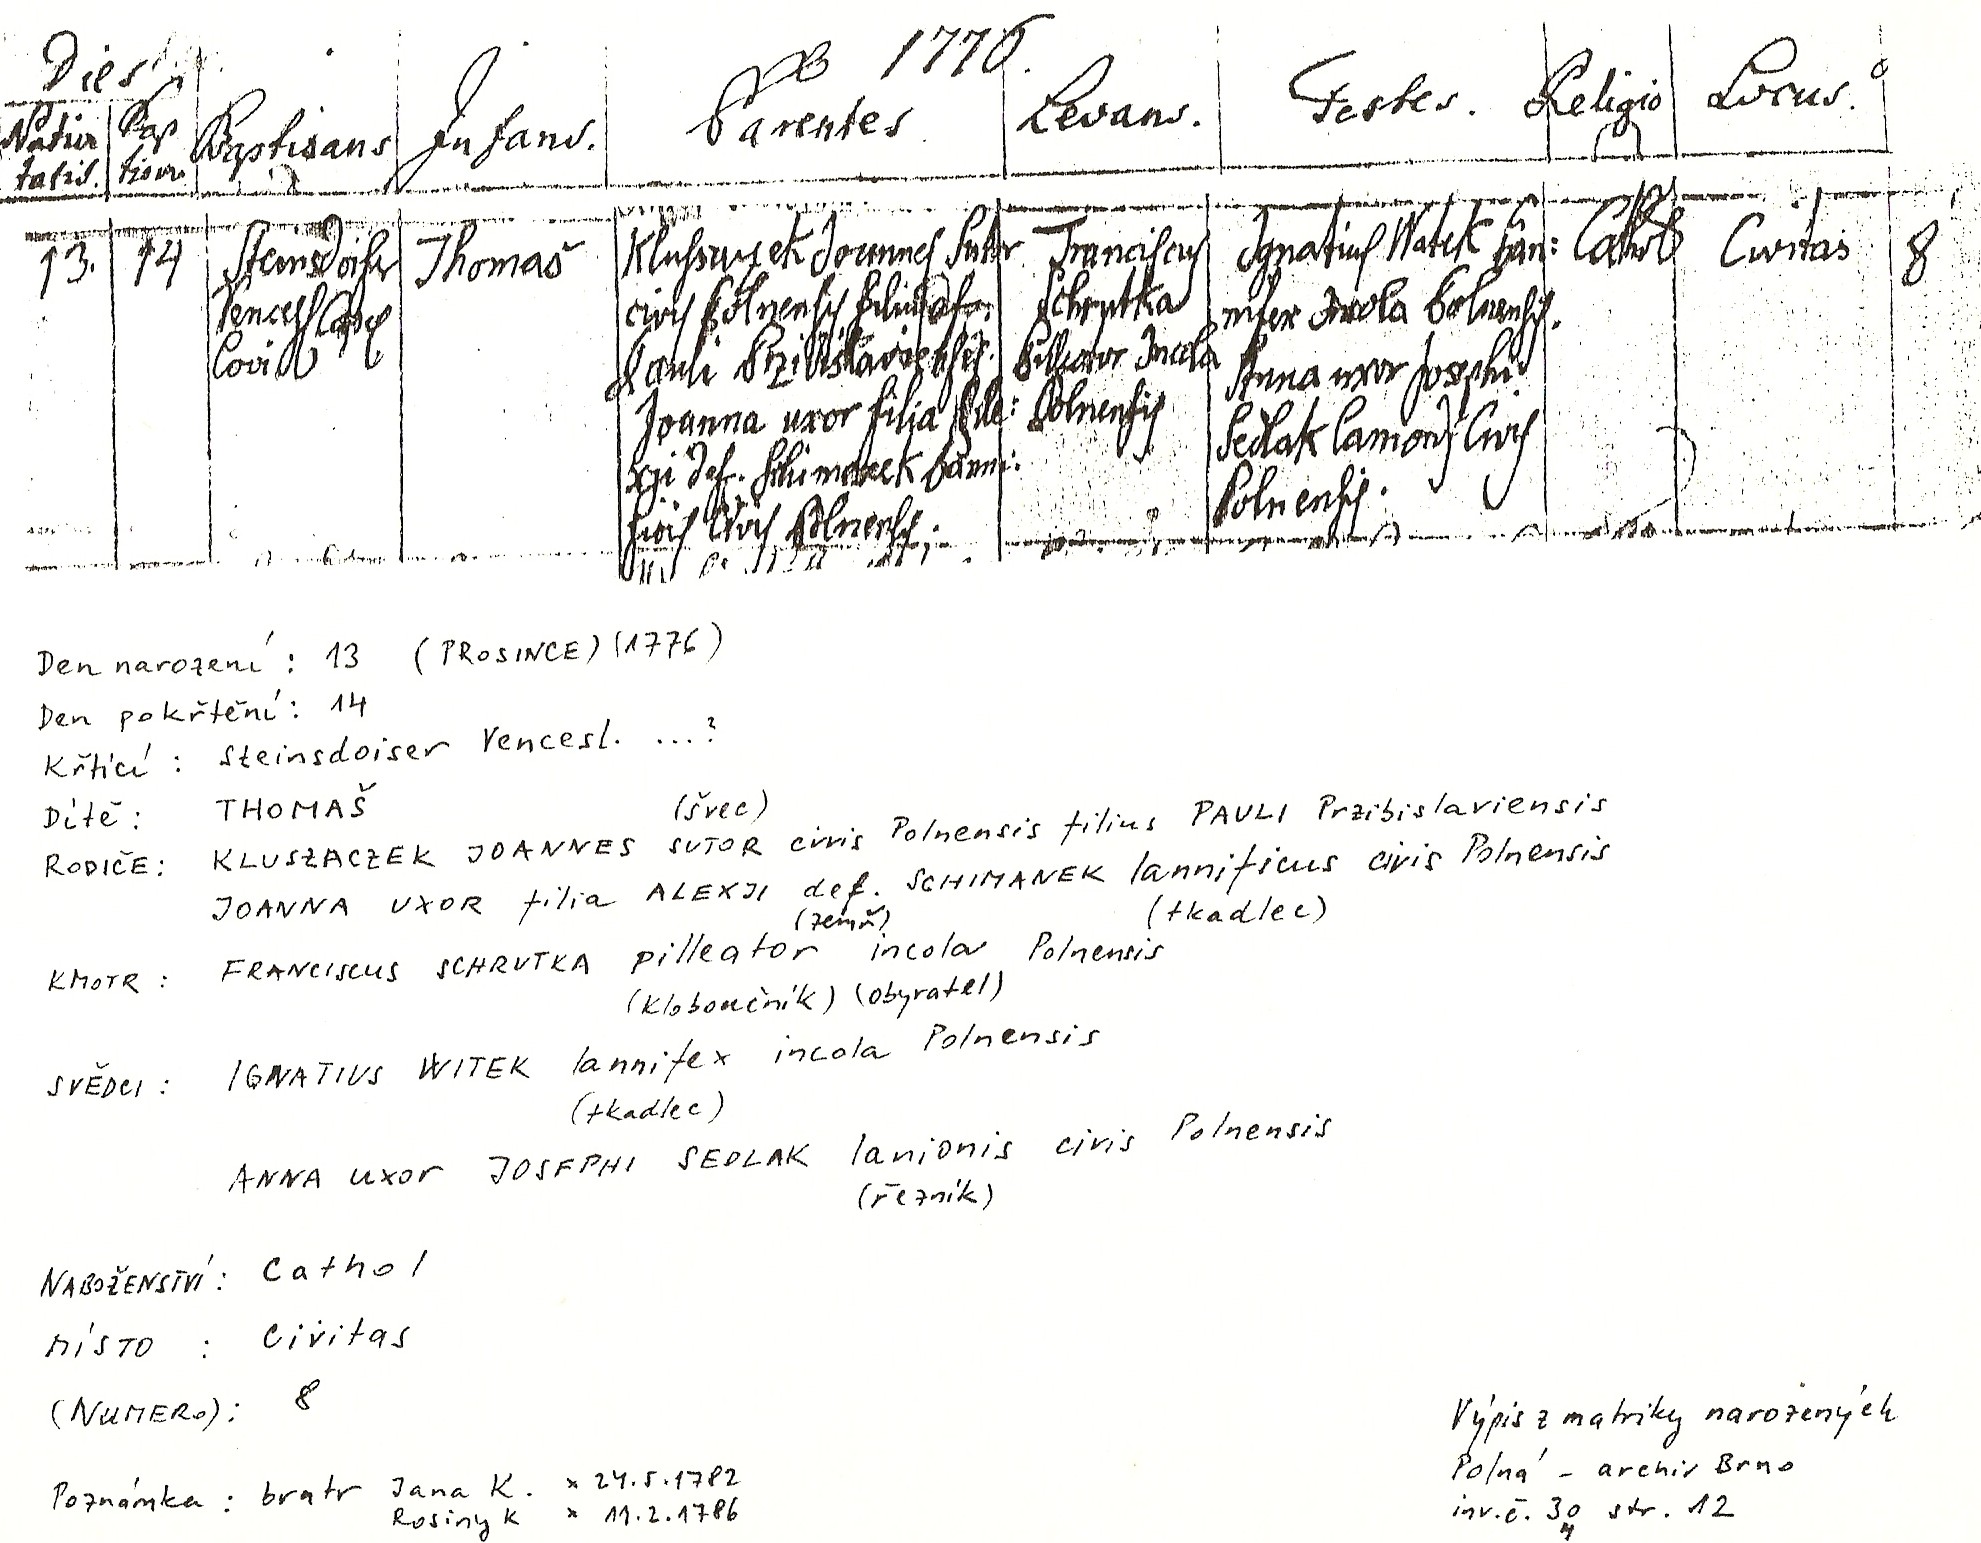 Dies
1776.
Nativi tatis. Bap tism. Baptisans Infans. Parentes Levans. Testes. Religio Locus.
13. 14 Steinsdoiser Thomaš Joannes Sutor Franciscus Ignatius Witek Lan: Cathol Civitas 8
civis Polnensis Filius Schrutka nifex Incola Polnensis.
Pauli Przibislaviensis. Pilleator Incola Anna uxor Josephi
Joanna uxor filia Ale: Polnensis Sedlak Lanionis Civis
xji def. Schimanek Lanni: Polnensis.
ficis Civis Polnensis.
Den narození : 13 (PROSINCE) (1776)
Den pokřtění : 14
Křtící : Steinsdoiser Vencesl. ...?
Dítě : THOMAŠ
(švec)
RODIČE : KLUSZACZEK JOANNES SUTOR civis Polnensis filius PAULI Przibislaviensis
JOANNA UXOR filia ALEXJI def. SCHIMANEK lannificus civis Polnensis
(zemř) (tkadlec)
KMOTR : FRANCISCUS SCHRUTKA pilleator incola Polnensis
(kloboučník) (obyvatel)
SVĚDCI : IGNATIUS WITEK lannifex incola Polnensis
(tkadlec)
ANNA uxor JOSEPHI SEDLAK lanionis civis Polnensis
(řezník)
NABOŽENSTVÍ : Cathol
MÍSTO : Civitas
(NUMERO) : 8
Poznámka : bratr Jana K. × 24.5.1782
Rosiny K × 11.2.1786
Výpis z matriky narozených
Polná - archiv Brno
inv.č. 30 str. 12